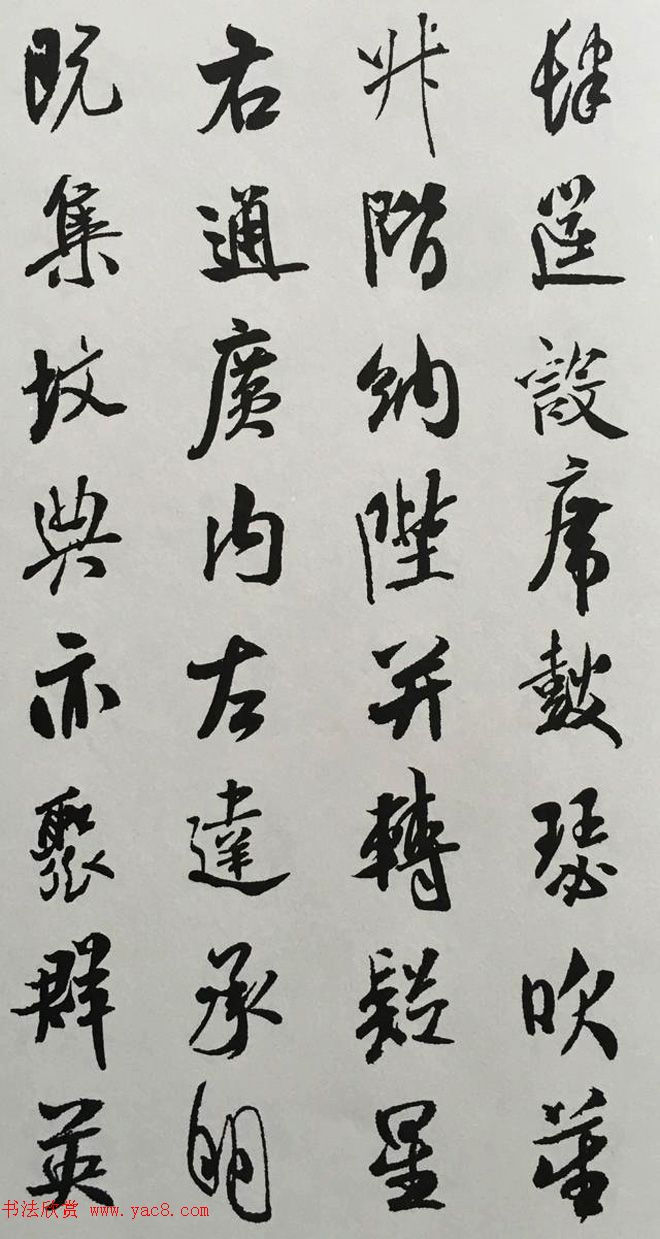 肆筵設席皷瑟吹笙
升階納陛弁轉疑星
右通廣内左達承明
既集坟典亦聚群英
书法欣赏 www.yac8.com